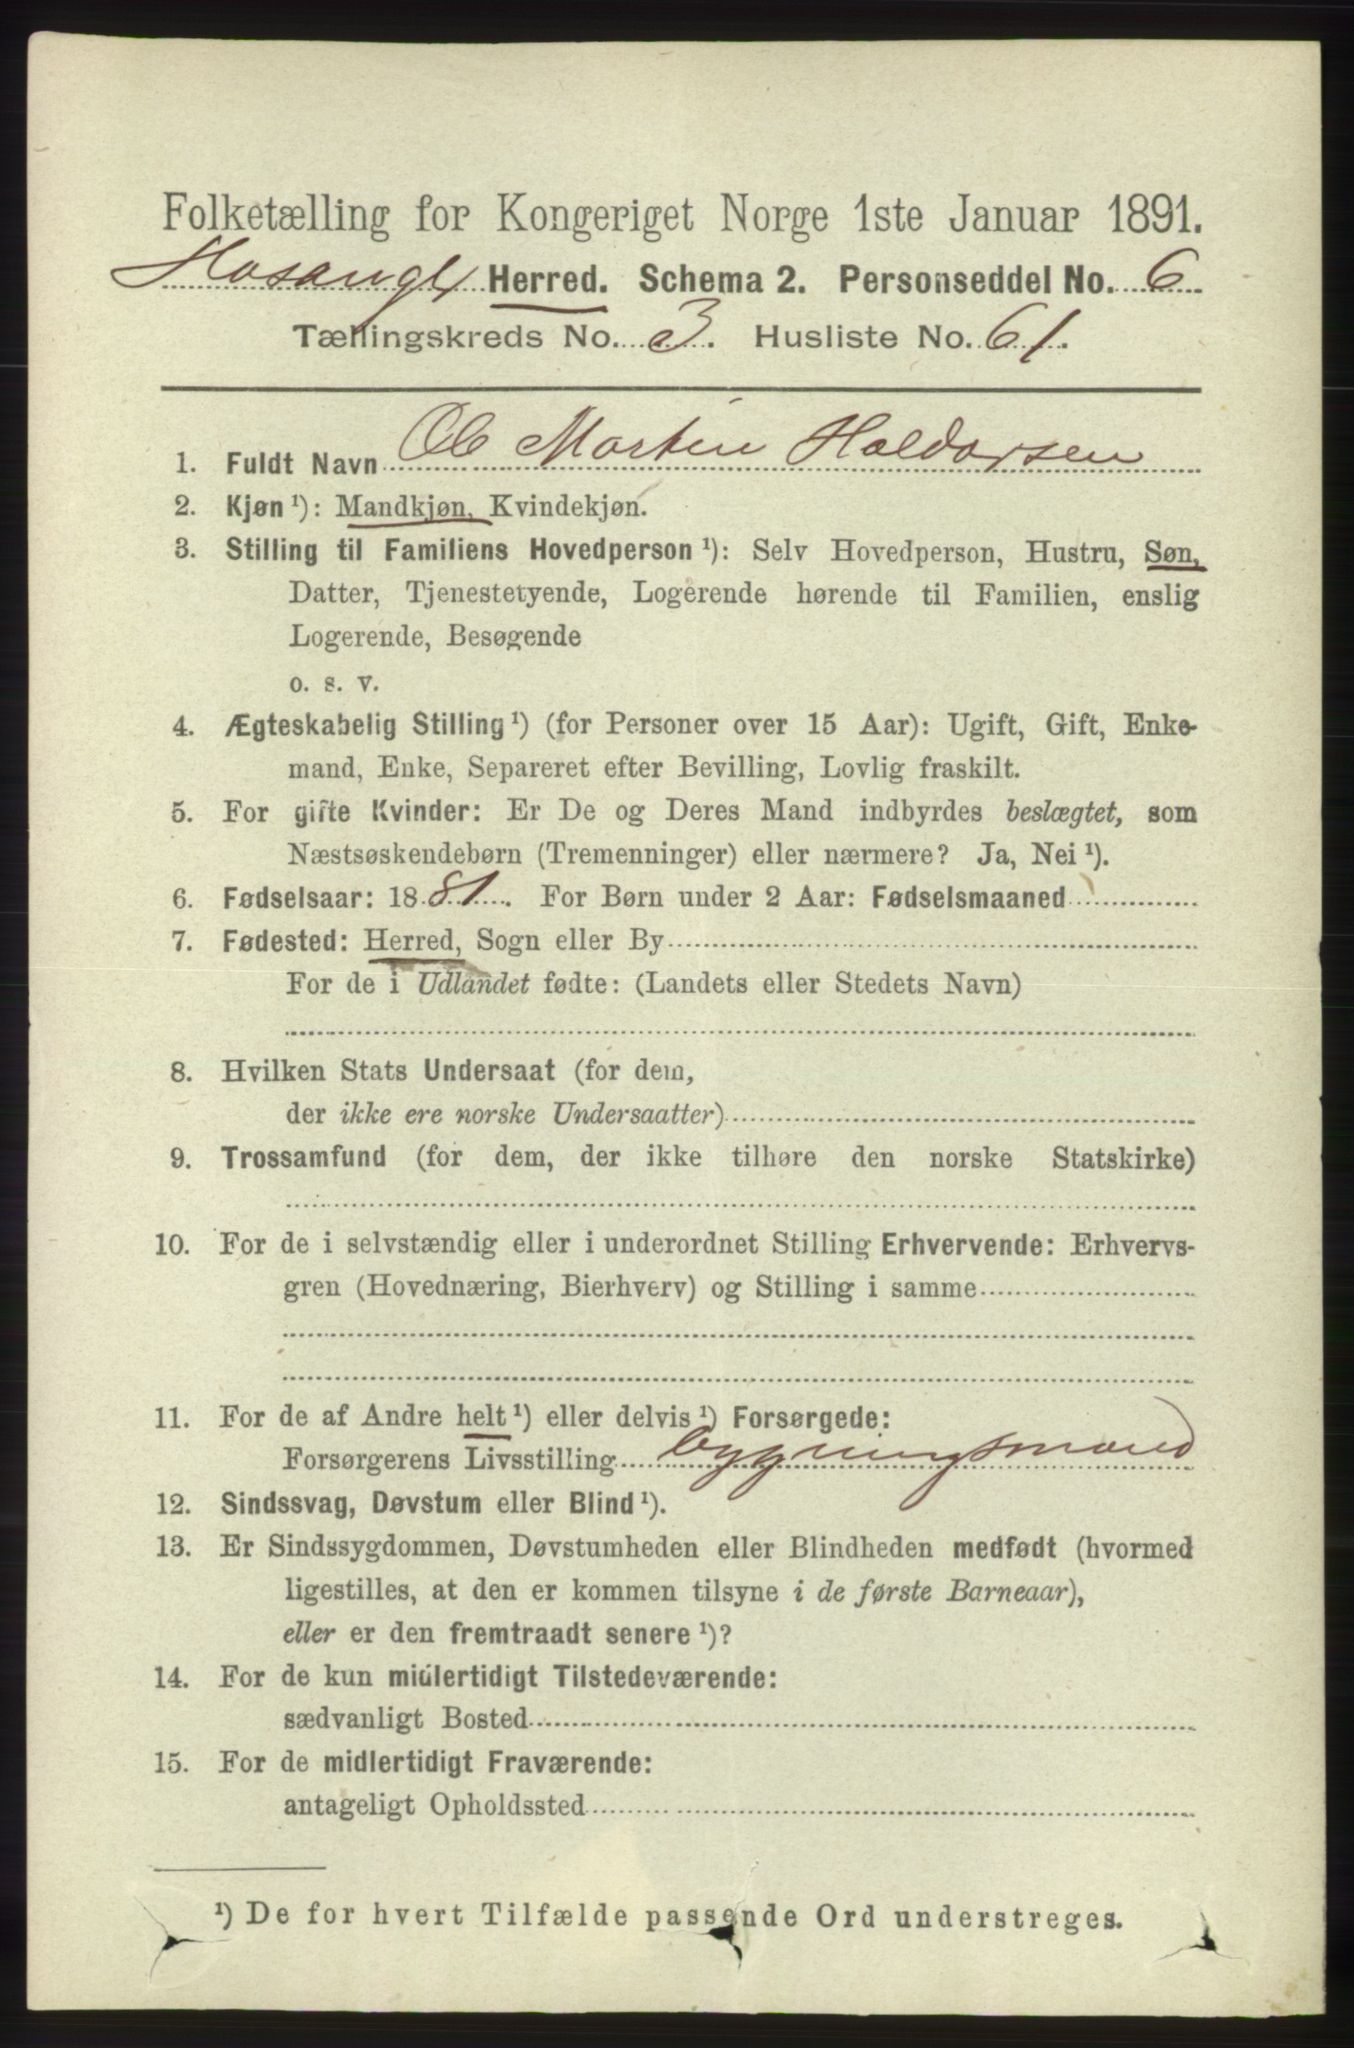 Folketælling for Kongeriget Norge 1ste Januar 1891.
Hosanger Herred. Schema 2. Personseddel No. 6
Tællingskreds No. 3. Husliste No. 61.
1. Fuldt Navn Ole Martin Haldorsen
2. Kjøn ¹): Mandkjøn, Kvindekjøn.
3. Stilling til Familiens Hovedperson ¹): Selv Hovedperson, Hustru, Søn,
Datter, Tjenestetyende, Logerende hørende til Familien, enslig
Logerende, Besøgende
o. s. v.
4. Ægteskabelig Stilling ¹) (for Personer over 15 Aar): Ugift, Gift, Enke-
mand, Enke, Separeret efter Bevilling, Lovlig fraskilt.
5. For gifte Kvinder: Er De og Deres Mand indbyrdes beslægtet, som
Næstsøskendebørn (Tremenninger) eller nærmere? Ja, Nei ¹).
6. Fødselsaar: 1881. For Børn under 2 Aar: Fødselsmaaned
7. Fødested: Herred, Sogn eller By
For de i Udlandet fødte: (Landets eller Stedets Navn)
8. Hvilken Stats Undersaat (for dem,
der ikke ere norske Undersaatter)
9. Trossamfund (for dem, der ikke tilhøre den norske Statskirke)
10. For de i selvstændig eller i underordnet Stilling Erhvervende: Erhvervs-
gren (Hovednæring, Bierhverv) og Stilling i samme
11. For de af Andre helt ¹) eller delvis ¹) Forsørgede:
Forsørgerens Livsstilling bygningsmand
12. Sindssvag, Døvstum eller Blind ¹).
13. Er Sindssygdommen, Døvstumheden eller Blindheden medfødt (hvormed
ligestilles, at den er kommen tilsyne i de første Barneaar),
eller er den fremtraadt senere ¹)?
14. For de kun midlertidigt Tilstedeværende:
sædvanligt Bosted
15. For de midlertidigt Fraværende:
antageligt Opholdssted
¹) De for hvert Tilfælde passende Ord understreges.